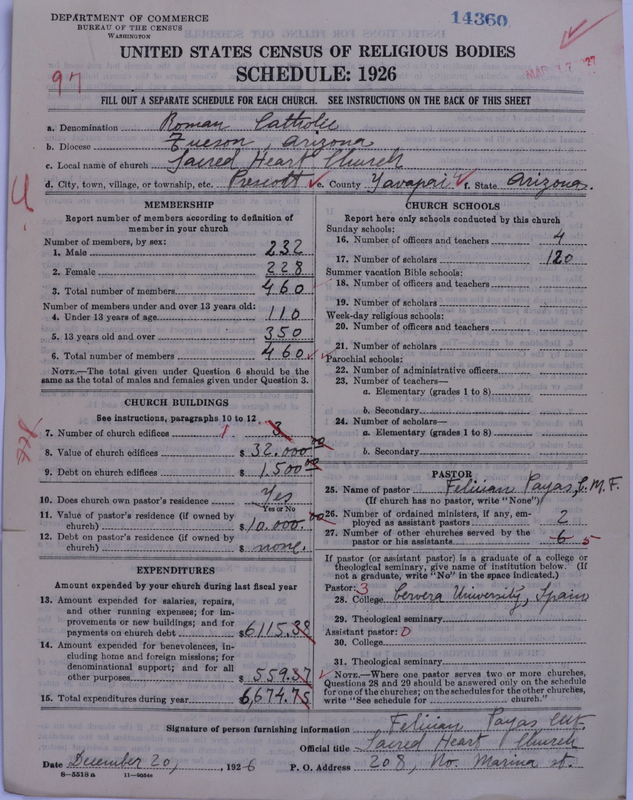 DEPARTMENT OF COMMERCE
BUREAU OF THE CENSUS
WASHINGTON
14360
UNITED STATES CENSUS OF RELIGIOUS BODIES
SCHEDULE: 1926
97
FILL OUT A SEPARATE SCHEDULE FOR EACH CHURCH. SEE INSTRUCTIONS ON THE BACK OF THIS SHEET
a. Denomination Roman Catholic
b. Diocese Tucson, Arizona
c. Local name of church Sacred Heart Church
d. City, town, village, or township, etc. Prescott e. County Yavapai f. State Arizona.
MEMBERSHIP
Report number of members according to definition of
member in your church
Number of members, by sex:
1. Male 232
2. Female 228
3. Total number of members 460
Number of members under and over 13 years old:
4. Under 13 years of age 110
5. 13 years old and over 350
6. Total number of members 460
NOTE.—The total given under Question 6 should be the
same as the total of males and females given under Question 3.
CHURCH BUILDINGS
See instructions, paragraphs 10 to 12
7. Number of church edifices 1 3
8. Value of church edifices $ 32.000 00
9. Debt on church edifices $ 1.500 00
10. Does church own pastor's residence Yes
Yes or No
11. Value of pastor's residence (if owned by
church) $ 10.000. 00
12. Debt on pastor's residence (if owned by
church) $ none.
EXPENDITURES
Amount expended by your church during last fiscal year
13. Amount expended for salaries, repairs,
and other running expenses; for im-
provements or new buildings; and for
payments on church debt $ 6115.38
14. Amount expended for benevolences, in-
cluding home and foreign missions; for
denominational support; and for all
other purposes $ 559.37
15. Total expenditures during year $ 6,674.75
CHURCH SCHOOLS
Report here only schools conducted by this church
Sunday schools:
16. Number of officers and teachers 4
17. Number of scholars 120
Summer vacation Bible schools:
18. Number of officers and teachers
19. Number of scholars
Week-day religious schools:
20. Number of officers and teachers
21. Number of scholars
Parochial schools:
22. Number of administrative officers
23. Number of teachers—
a. Elementary (grades 1 to 8)
b. Secondary
24. Number of scholars—
a. Elementary (grades 1 to 8)
b. Secondary
PASTOR
25. Name of pastor Felician Payas, C.M.F.
(If church has no pastor, write "None")
26. Number of ordained ministers, if any, em-
ployed as assistant pastors 2
27. Number of other churches served by the
pastor or his assistants 6 5
If pastor (or assistant pastor) is a graduate of a college or
theological seminary, give name of institution below. (If
not a graduate, write "No" in the space indicated.)
Pastor: 3
28. College Cervera University, Spain
29. Theological seminary
Assistant pastor: 0
30. College
31. Theological seminary
NOTE.—Where one pastor serves two or more churches,
Questions 28 and 29 should be answered only on the schedule
for one of the churches; on the schedules for the other churches,
write "See schedule for church."
Signature of person furnishing information Felician Payas
Official title Sacred Heart Church
Date December 20, 1926 P. O. Address 208, No. Marina st.
8—5518a 11—9054a